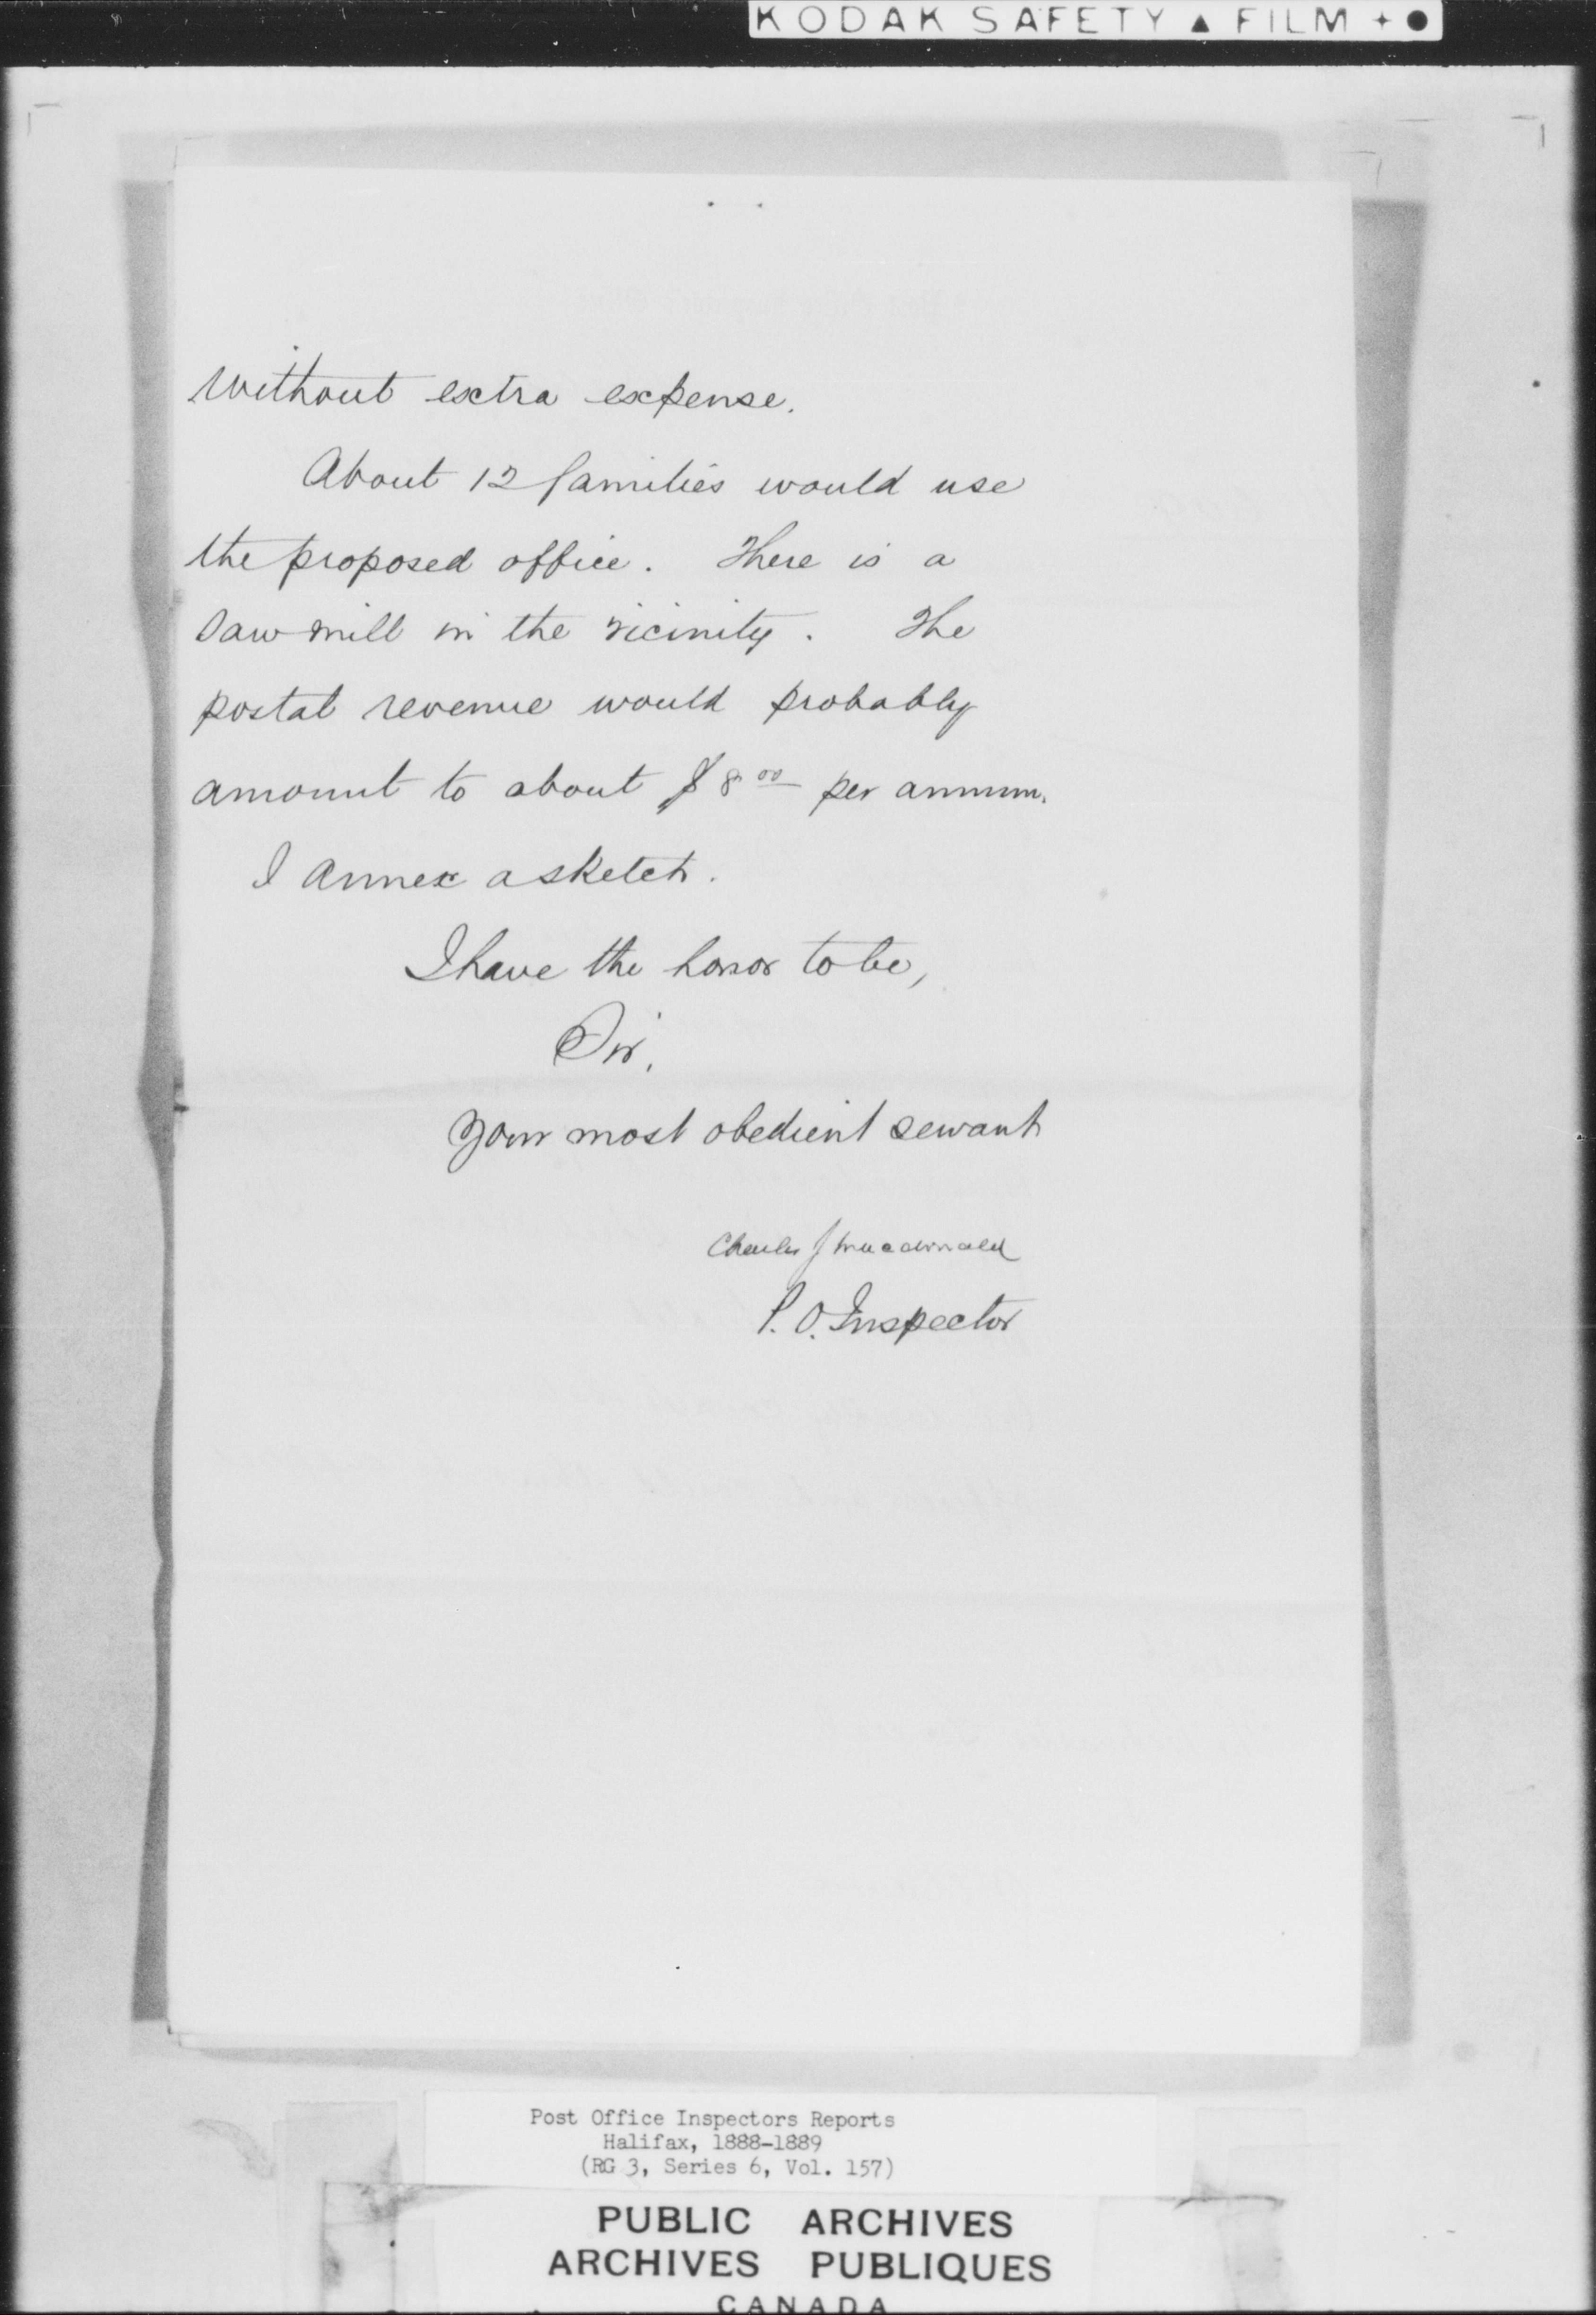 KODAK SAFETY ▲ FILM + ●
without extra expense.
About 12 families would use
the proposed office. There is a
saw mill in the vicinity. The
postal revenue would probably
amount to about $8 00 per annum.
I annex a sketch.
I have the honor to be,
Sir,
Your most obedient servant
Charles J Macdonald
P. O. Inspector
Post Office Inspectors Reports
Halifax, 1888-1889
(RG 3, Series 6, Vol. 157)
PUBLIC ARCHIVES
ARCHIVES PUBLIQUES
CANADA